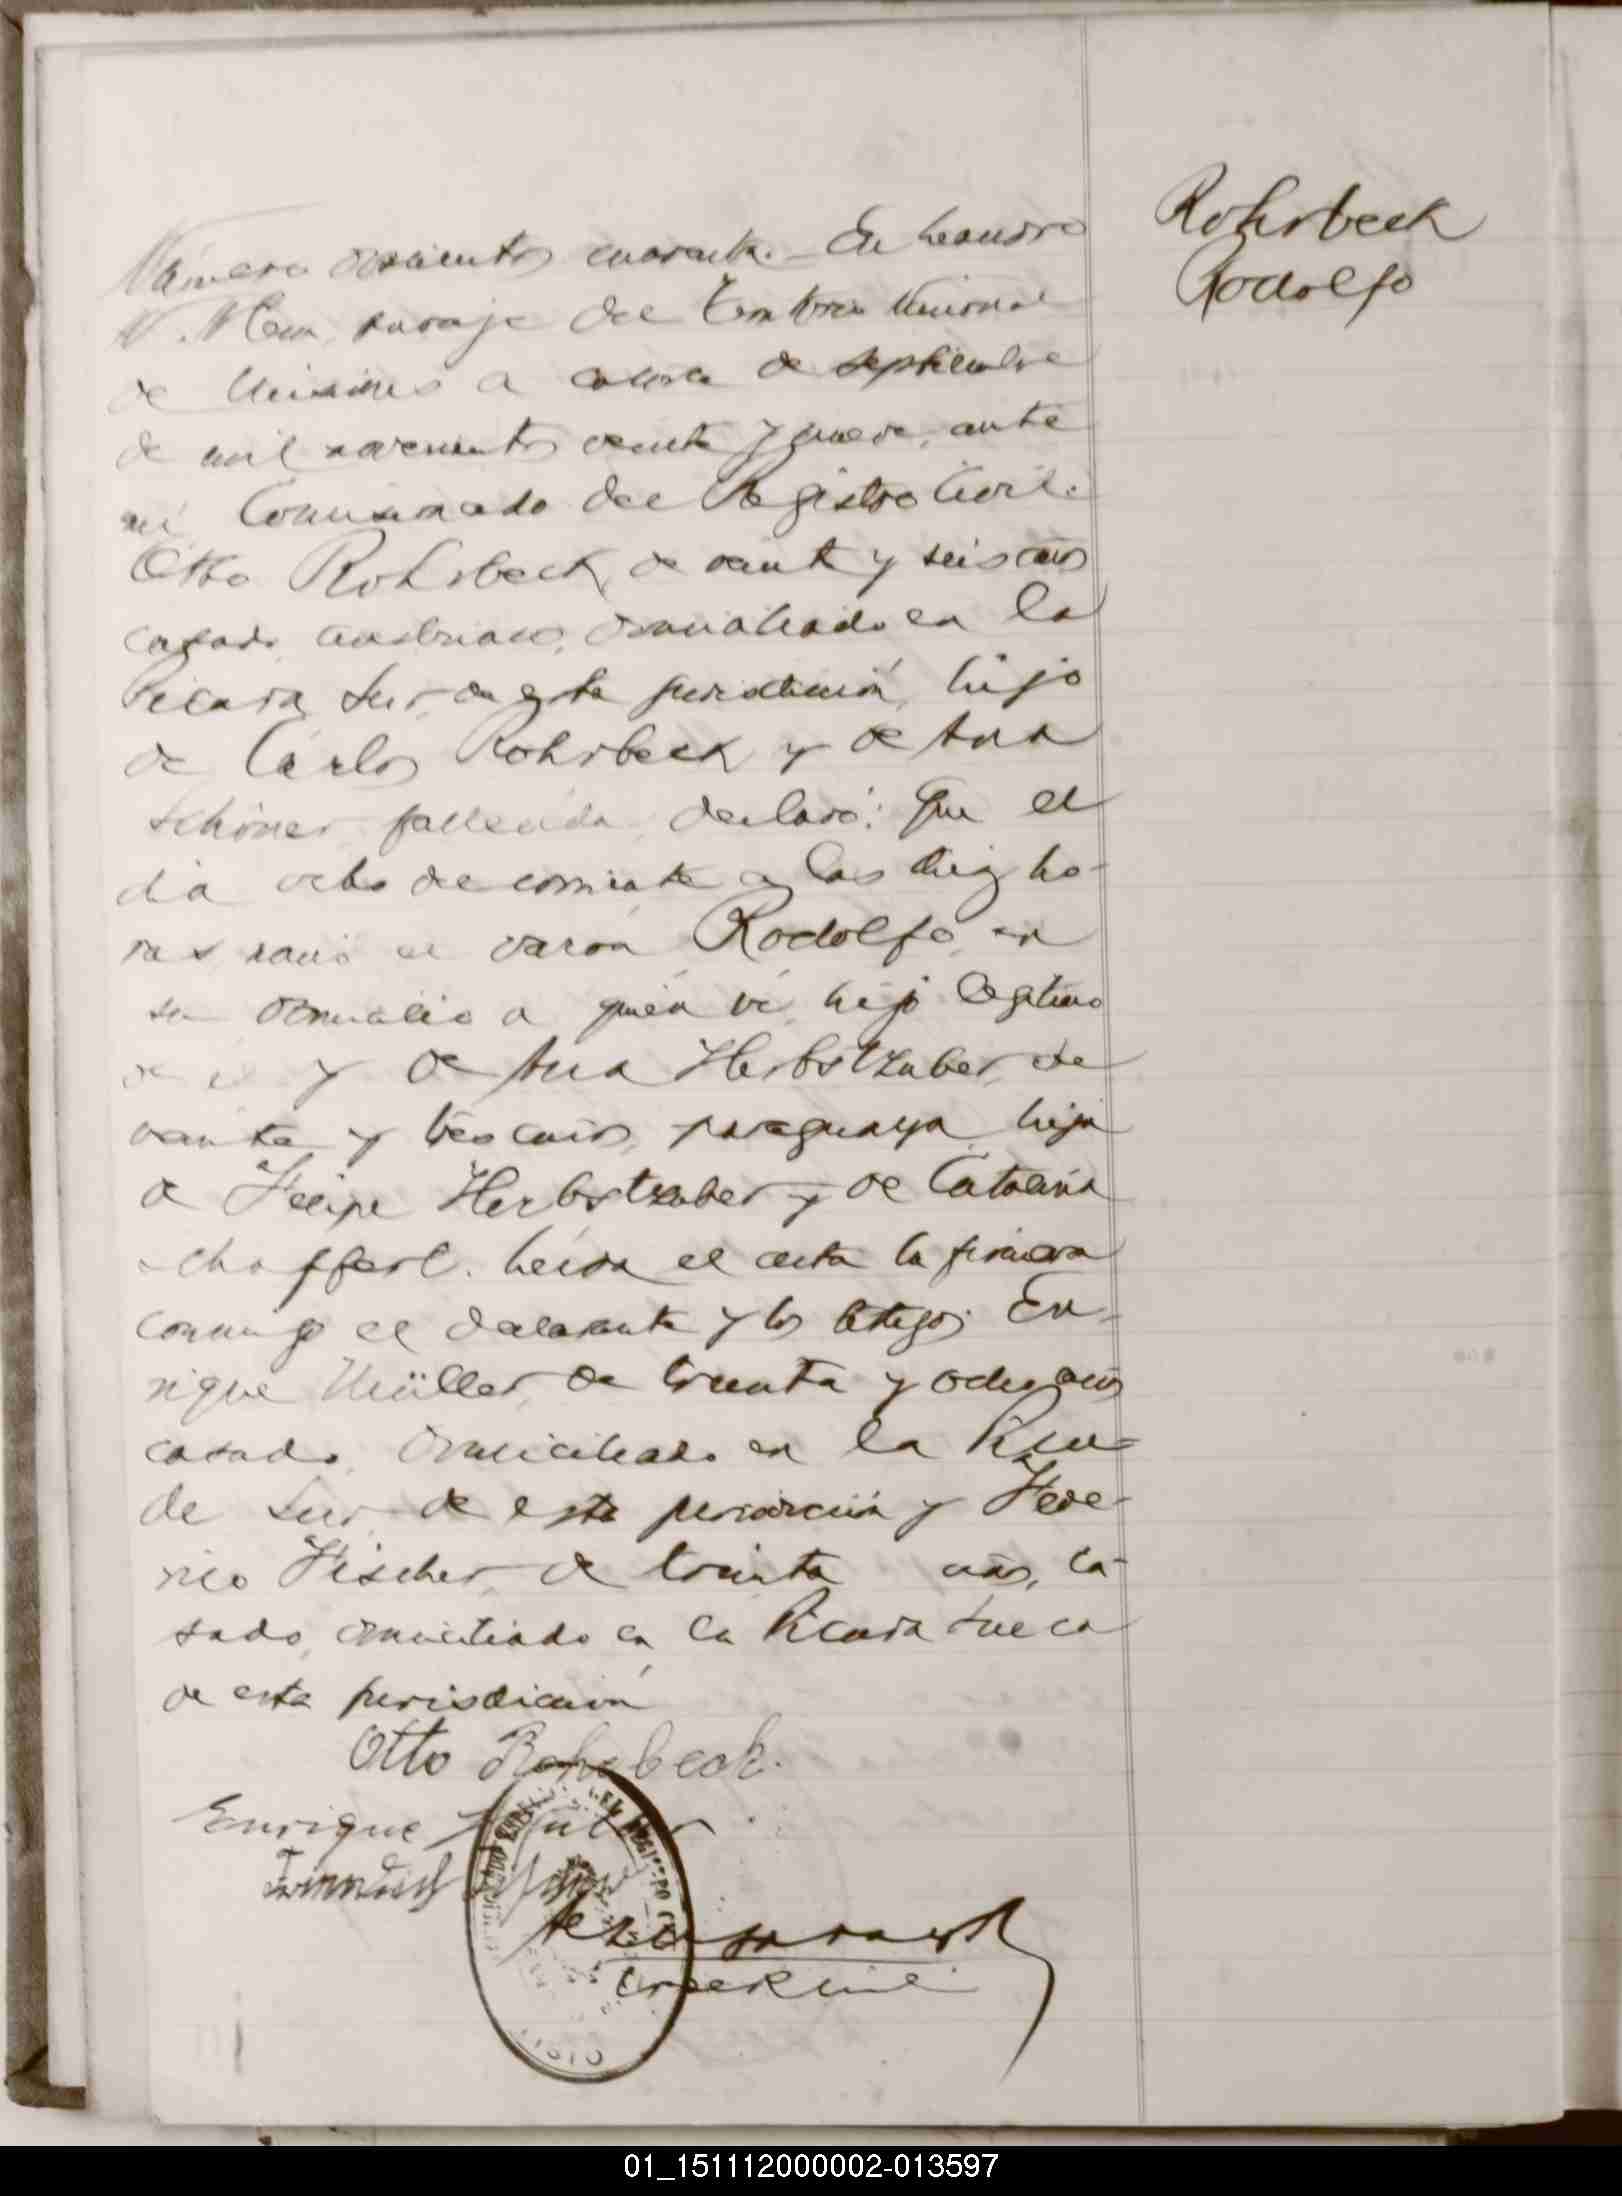 Rohrbeck
Rodolfo
Número doscientos cuarenta. - En Leandro
N. Alem, paraje del Territorio Nacional
de Misiones a catorce de septiembre
de mil novecientos veinte y nueve, ante
mi Comisionado del Registro Civil.
Otto Rohrbeck, de veinte y seis años
casado, austriaco, domiciliado en la
Picada Sur, de esta jurisdicción, hijo
de Carlos Rohrbeck y de Ana
Schöner, fallecida, declaró: Que el
día ocho del corriente a las diez ho-
ras nació el varón Rodolfo, en
su domicilio a quién ví, hijo legítimo
de él y de Ana Herbstzuber, de
veinte y tres años, paraguaya, hija
de Felipe Herbstzuber y de Catalina
Leída el acta la firmaron
conmigo el declarante y los testigos En-
rique Müller, de treinta y ocho años
casado, domiciliado en la Pica-
da Sur de esta jurisdicción y Fede-
rico Fischer, de treinta años, ca-
sado, domiciliado en la Picada Sueca
de esta jurisdicción
Otto Rohrbeck.
Enrique Müller
01_151112000002-013597